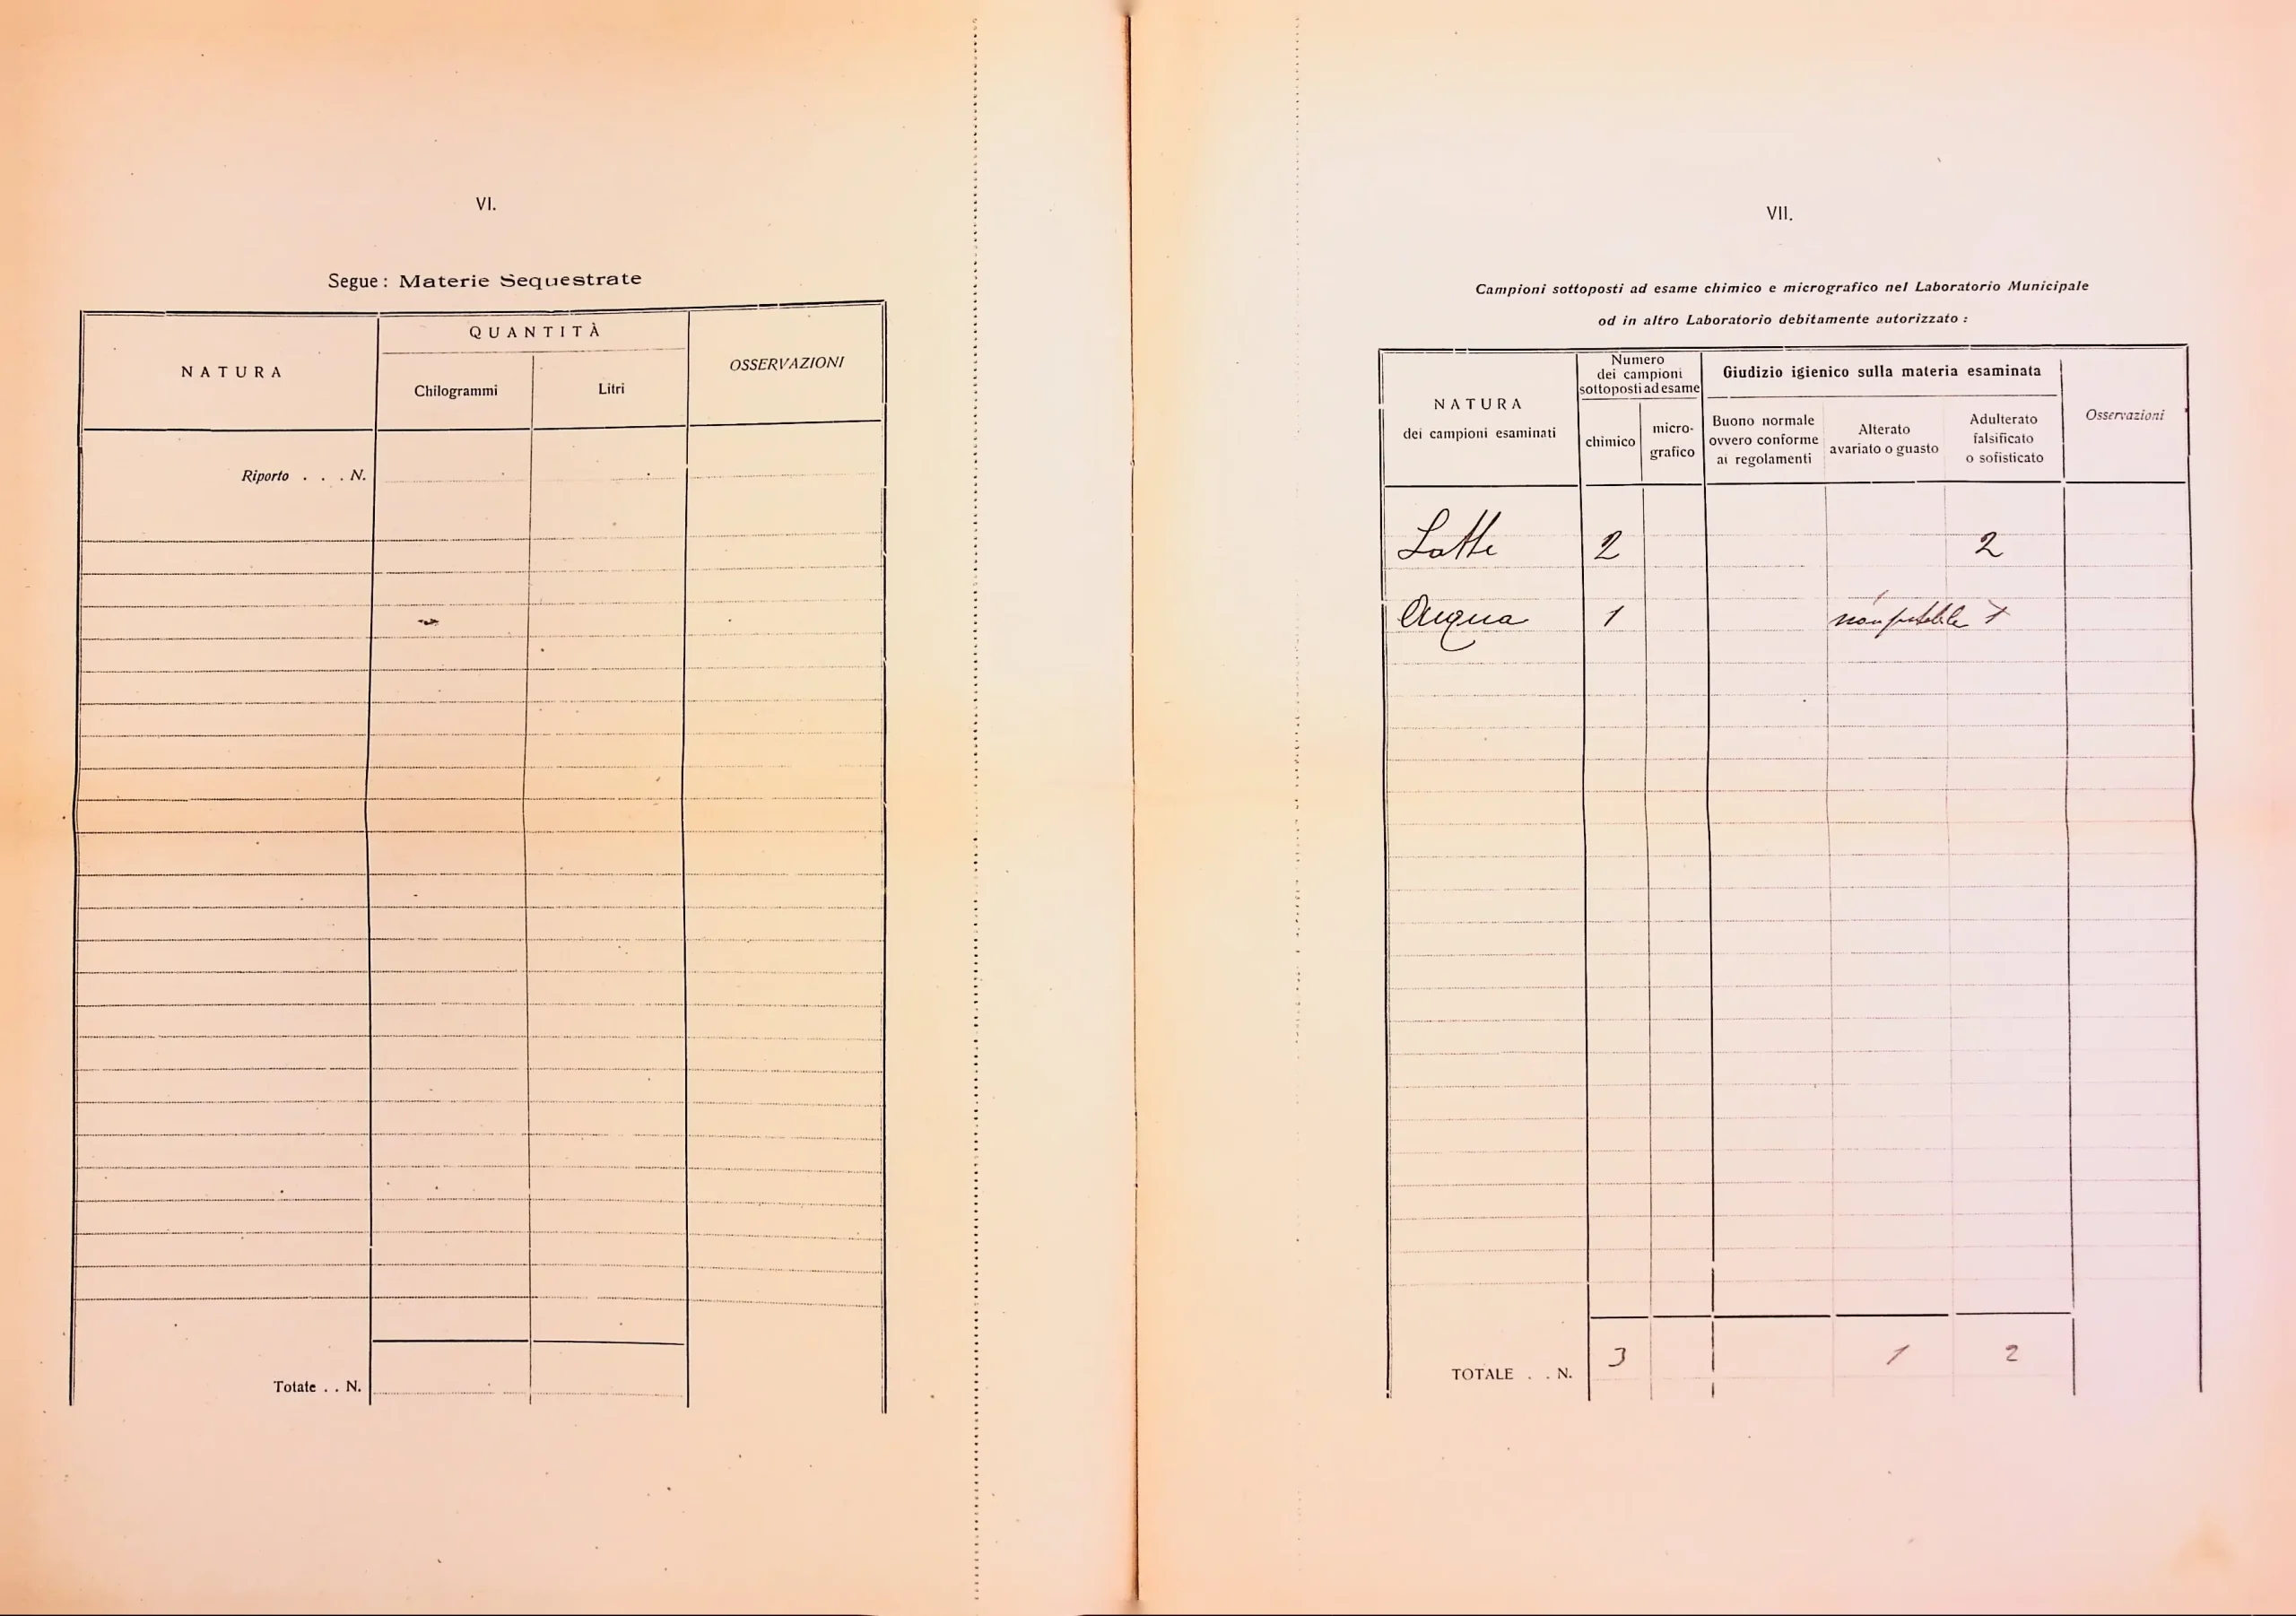 VI.
Segue: Materie Sequestrate
NATURA
QUANTITÀ
Chilogrammi
Litri
OSSERVAZIONI
Riporto . . . N.
Totale . . N.
VII.
Campioni sottoposti ad esame chimico e micrografico nel Laboratorio Municipale
od in altro Laboratorio debitamente autorizzato :
NATURA
dei campioni esaminati
Numero
dei campioni
sottoposti ad esame
chimico
micro-
grafico
Giudizio igienico sulla materia esaminata
Buono normale
ovvero conforme
ai regolamenti
Alterato
avariato o guasto
Adulterato
falsificato
o sofisticato
Osservazioni
Latte 2 2
Acqua 1 non potabile
TOTALE . . N. 3 1 2